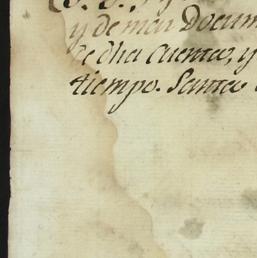 y de mas Docum
de dha Cuenta, y
tiempo. Santa